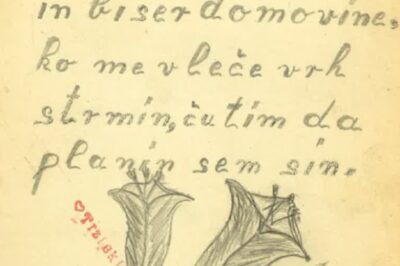 in biser domovine,
ko me vleče vrh
strmin, čutim da
planin sem sin.